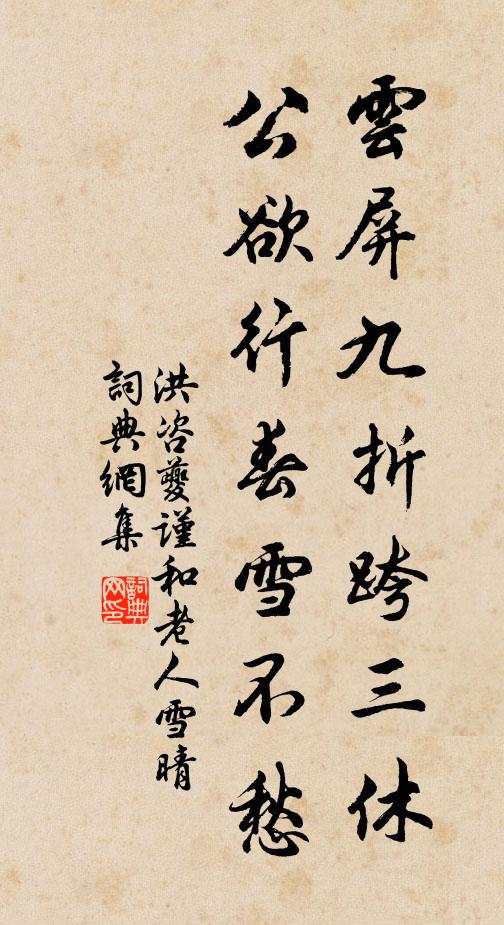 雲屏九折跨三休
公欲行春雪不愁
洪咨夔謹和老人雪晴
詞典網集
詞典網印